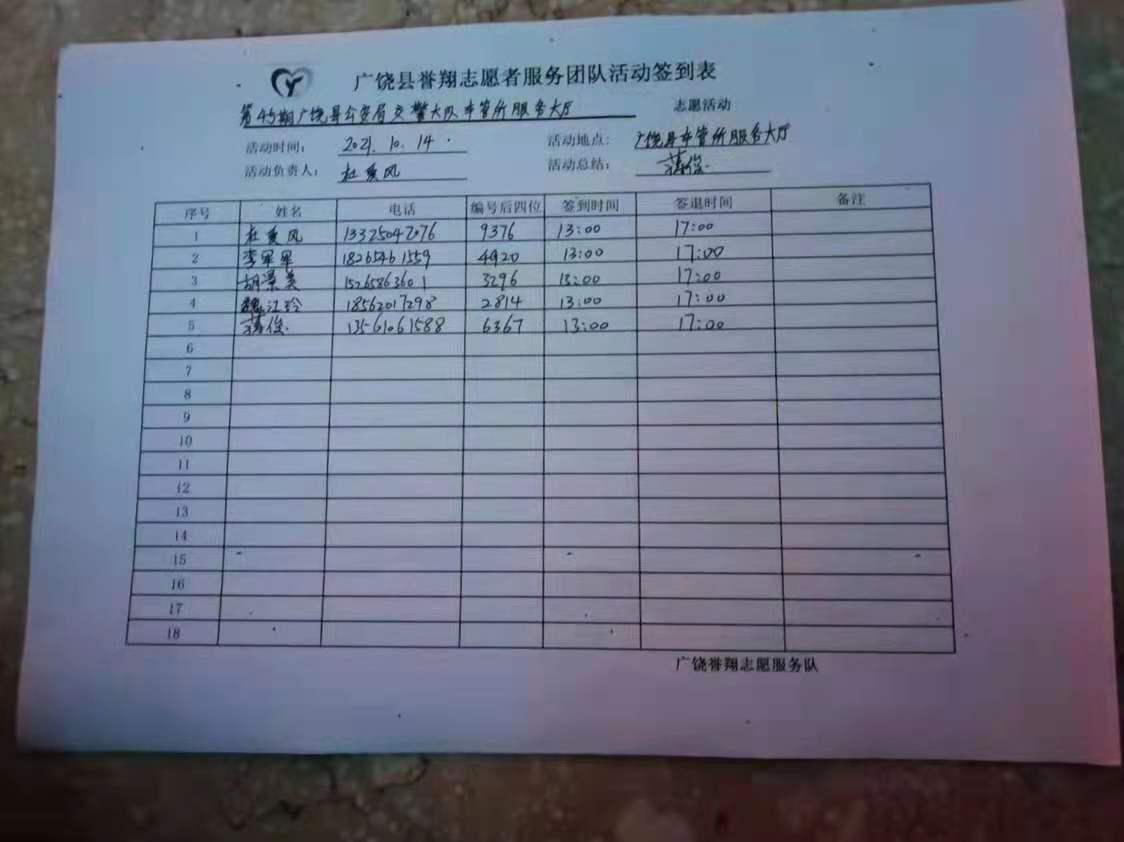 广饶县誉翔志愿者服务团队活动签到表
第45期广饶县公安局交警大队车管所服务大厅 志愿活动
活动时间: 2021.10.14. 活动地点: 广饶县车管所服务大厅
活动负责人: 杜重风 活动总结: 蒋俊
序号 姓名 电话 编号后四位 签到时间 签退时间 备注
1 杜重风 13325042076 9376 13:00 17:00
2 李军军 18265461559 4920 13:00 17:00
3 胡景美 15265863601 3296 13:00 17:00
4 魏江玲 18562017298 2814 13:00 17:00
5 蒋俊. 13561061588 6367 13:00 17:00
6
7
8
9
10
11
12
13
14
15
16
17
18
广饶誉翔志愿服务队